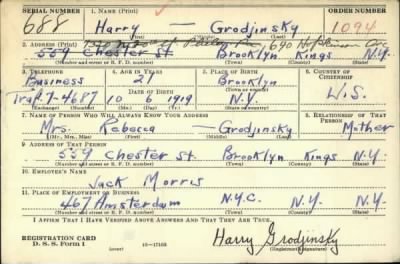 SERIAL NUMBER 1. NAME (Print) ORDER NUMBER
688 Harry — Grodjinsky 1094
2. ADDRESS (Print) 690 Hopkinson Av.
559 Chester st. Brooklyn Kings N.Y.
(Number and street or R. F. D. number) (Town) (County) (State)
3. TELEPHONE 4. AGE IN YEARS 5. PLACE OF BIRTH 6. COUNTRY OF CITIZENSHIP
Business 21 Brooklyn
DATE OF BIRTH
Traf. 7-4687 10 6 1919 N.Y. U.S.
(Exchange) (Number) (Mo.) (Day) (Yr.) (State or country)
7. NAME OF PERSON WHO WILL ALWAYS KNOW YOUR ADDRESS 8. RELATIONSHIP OF THAT PERSON
Mrs. Rebecca — Grodjinsky Mother
(Mr., Mrs., Miss) (First) (Middle) (Last)
9. ADDRESS OF THAT PERSON
559 Chester st. Brooklyn Kings N.Y.
(Number and street or R. F. D. number) (Town) (County) (State)
10. EMPLOYER'S NAME
Jack Morris
11. PLACE OF EMPLOYMENT OR BUSINESS
467 Amsterdam N.Y.C. N.Y. N.Y.
(Number and street or R. F. D. number) (Town) (County) (State)
I AFFIRM THAT I HAVE VERIFIED ABOVE ANSWERS AND THAT THEY ARE TRUE.
REGISTRATION CARD
D. S. S. Form 1 (over) 16—17105 Harry Grodjinsky
(Registrant's signature)